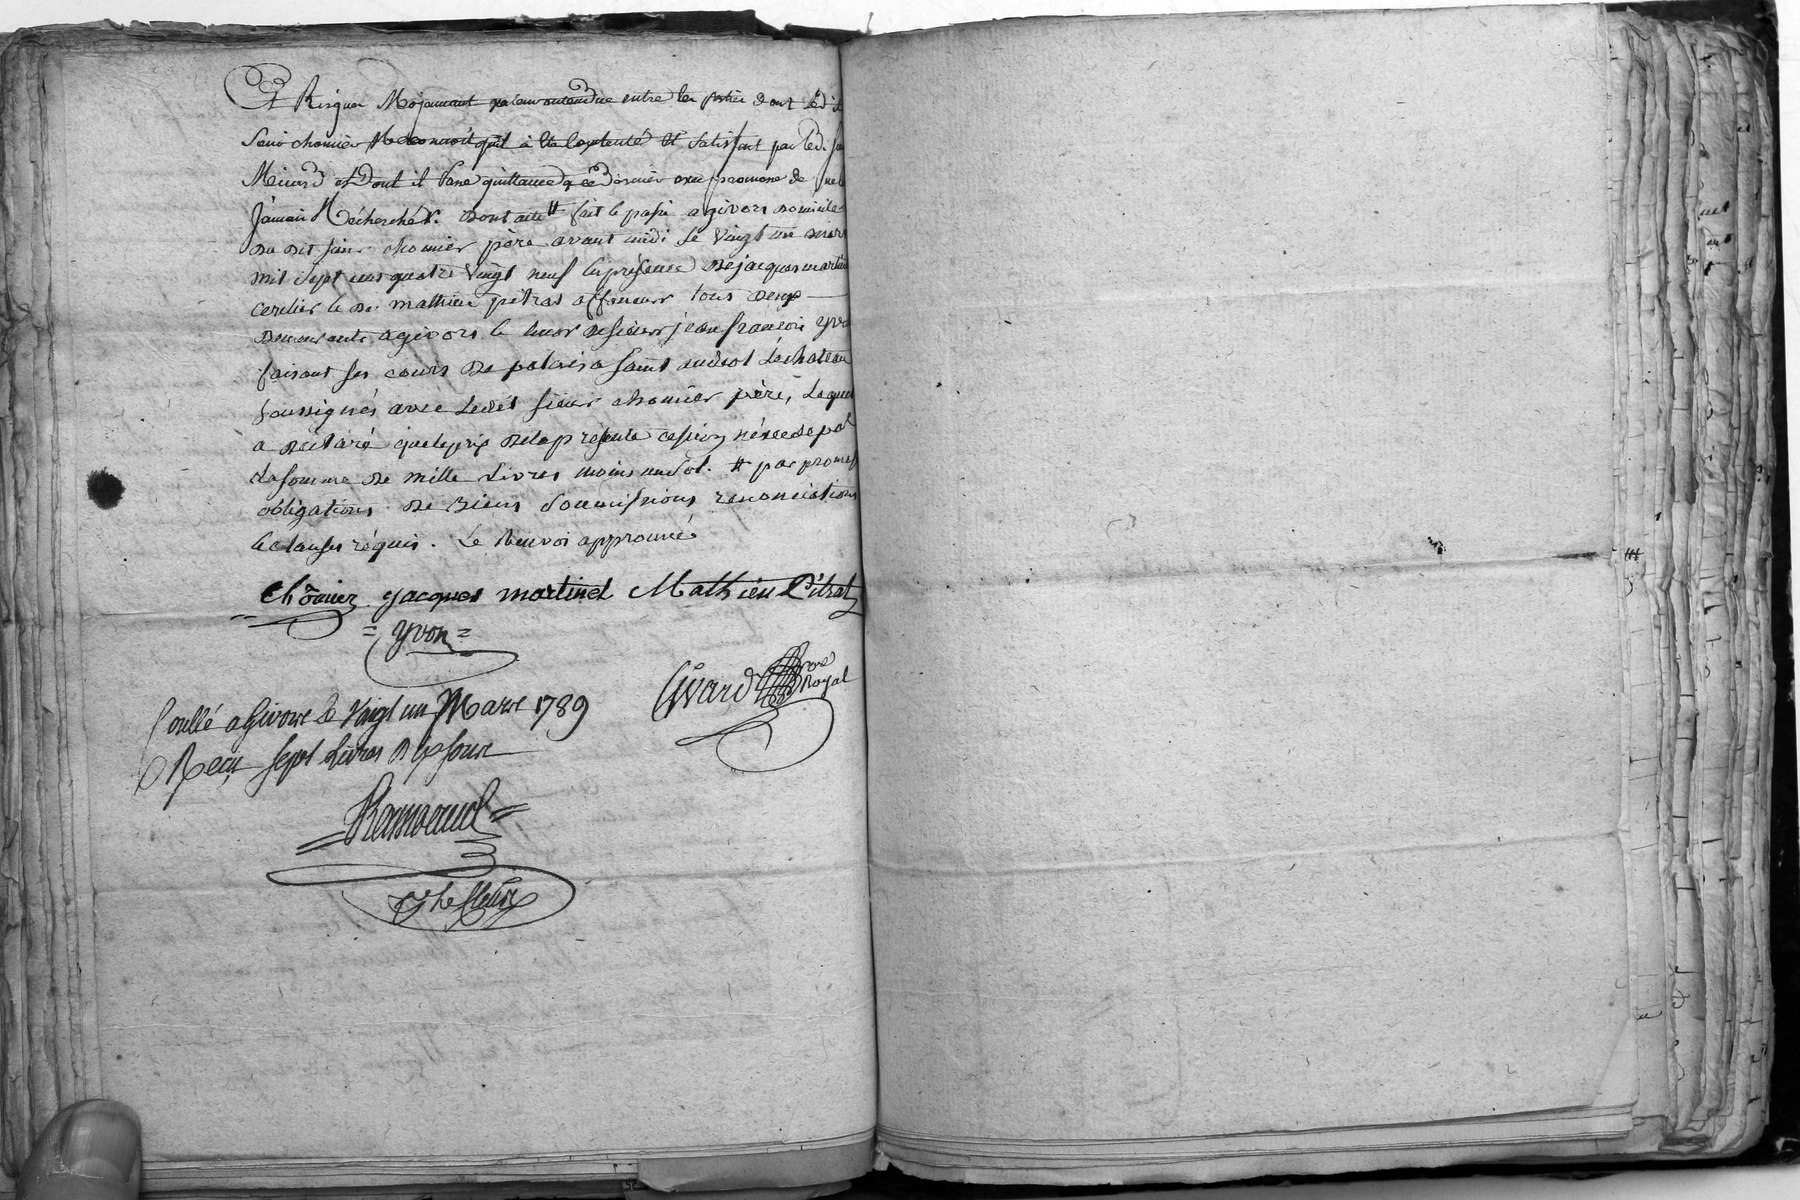 Et Risques Moyennant entre les parties dont Led.
Sieur chomier Reconnoit qu'il à été Contenté et satisfait par led. Sieur
et Dont il quittance promesse de
Jamais Récherché. Dont acte # fait & passé a givors domicile
du dit sieur chomier père avant midi le vingt un mars
mil sept cent quatre vingt neuf en présence de jacques martinet
& Sr. mathieu pitrat affaneur tous deux
demeurants a givors & encor de sieur jean françois yvon
faisant ses cours de palais a saint andéol le chateau
soussignés avec ledit sieur chomier père, Lequel
a déclaré que le prix de la présente cession n'éxcede pas
la somme de mille Livres moins un sol. # par promesses
obligations de Biens Soumissions renonciations
& clauses réquis. Le Renvoi approuvé
chomier jacques martinet Mathieu Pitrat
= yvon =
Girard nore
Royal
Conllé a Givors le Vingt un Mars 1789
Reçu sept Livres dix sous